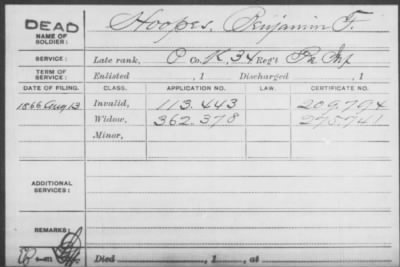 DEAD
NAME OF SOLDIER: Hoopes, Benjamin F.
SERVICE: Late rank, Co. K, 34 Reg't Pa Inf
TERM OF SERVICE: Enlisted , 1 Discharged , 1
DATE OF FILING. CLASS. APPLICATION NO. LAW. CERTIFICATE NO.
1866 Aug 13 Invalid, 113.443 209.794
Widow, 362.378 275.741
Minor,
ADDITIONAL SERVICES:
REMARKS:
Died , 1 , at